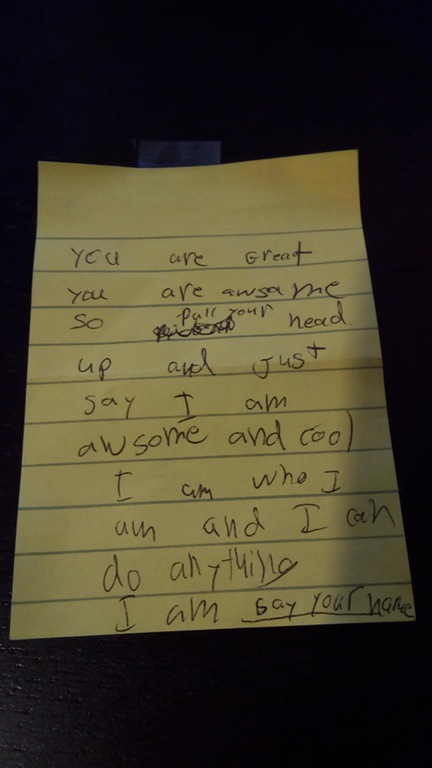 you are Great
you are awsome
so pull your head
up and Just
say I am
awsome and cool
I am who I
am and I can
do anything
I am say your name